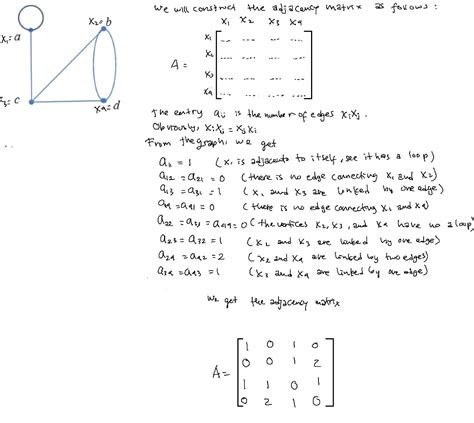 We will construct the adjacency matrix as follows:
x₁ x₂ x₃ x₄
x₁ .... .... .... ....
A = x₂ .... .... .... ....
x₃ .... .... .... ....
x₄ .... .... .... ....
x₁=a
x₂=b
x₃=c
x₄=d
The entry aᵢⱼ is the number of edges xᵢxⱼ.
Obviously, xᵢxⱼ = xⱼxᵢ
From the graph, we get
= 1 (x₁ is adjacent to itself, see it has a loop)
a₁₂ = a₂₁ = 0 (there is no edge connecting x₁ and x₂)
a₁₃ = a₃₁ = 1 (x₁ and x₃ are linked by one edge)
= a₄₁ = 0 (there is no edge connecting x₁ and x₄)
a₂₂ = = a₄₄ = 0 (the vertices x₂, x₃, and x₄ have no a loop)
a₂₃ = a₃₂ = 1 (x₂ and x₃ are linked by one edge)
a₂₄ = a₄₂ = 2 (x₂ and x₄ are linked by two edges)
a₃₄ = a₄₃ = 1 (x₃ and x₄ are linked by one edge)
We get the adjacency matrix
1 0 1 0
0 0 1 2
A= 1 1 0 1
0 2 1 0